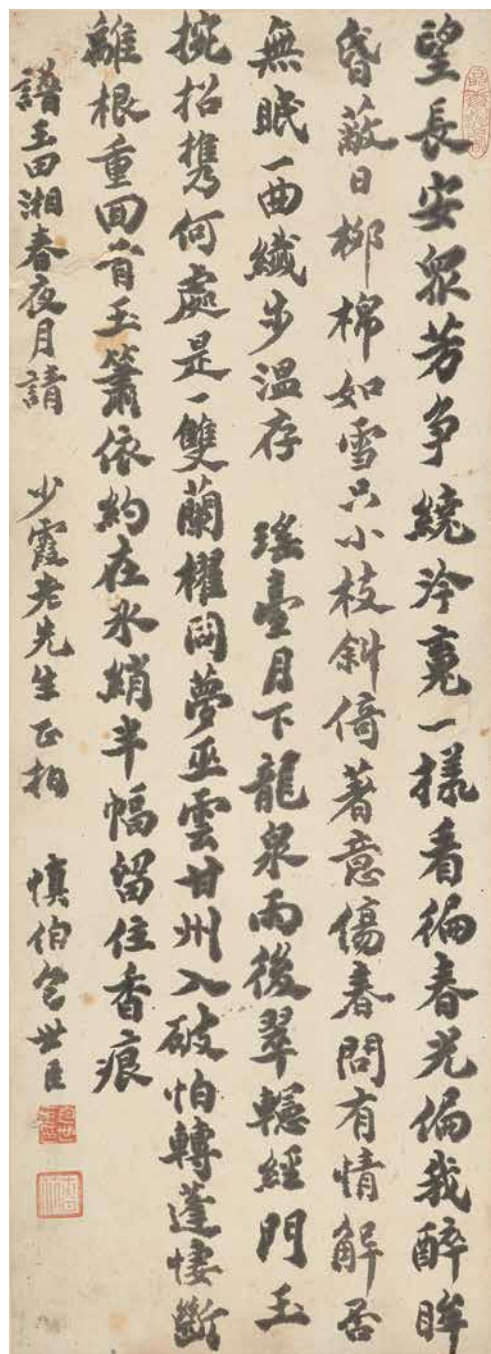 望長安眾芳爭繞泠亮一樣看徧春光偏我醉眸
昏蔽日柳棉如雪只小枝斜倚著意傷春問有情解否
無眠一曲纖步溫存 瑤臺月下龍泉雨後翠幰經門玉
捥招攜何處是一雙蘭櫂同夢巫雲甘州入破怕轉蓬悽斷
離根重回首玉簫依約在冰綃半幅留住香痕
譜玉田湘春夜月請 少霞老先生正拍 慎伯包世臣